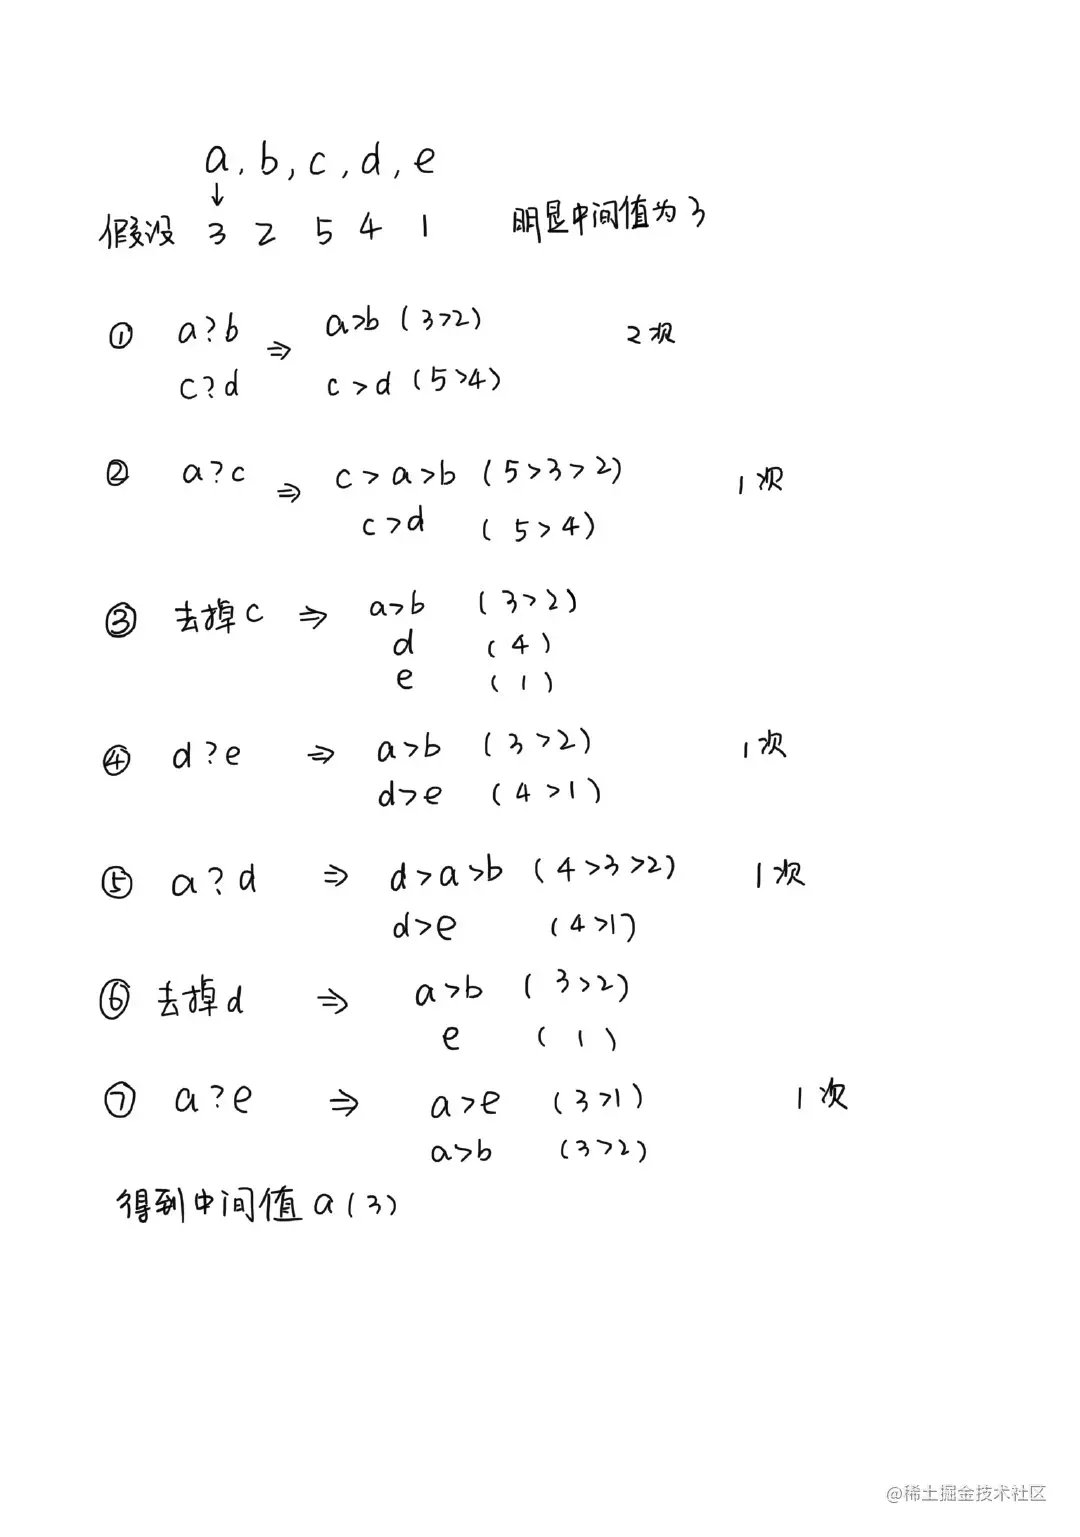 a,b,c,d,e
↓
假设 3 2 5 4 1 明显中间值为3
① a?b ⇒ a>b (3>2) 2次
c?d c>d (5>4)
② a?c ⇒ c>a>b (5>3>2) 1次
c>d (5>4)
③ 去掉c ⇒ a>b (3>2)
d (4)
e (1)
④ d?e ⇒ a>b (3>2) 1次
d>e (4>1)
⑤ a?d ⇒ d>a>b (4>3>2) 1次
d>e (4>1)
⑥ 去掉d ⇒ a>b (3>2)
e (1)
⑦ a?e ⇒ a>e (3>1) 1次
a>b (3>2)
得到中间值 a(3)
@稀土掘金技术社区